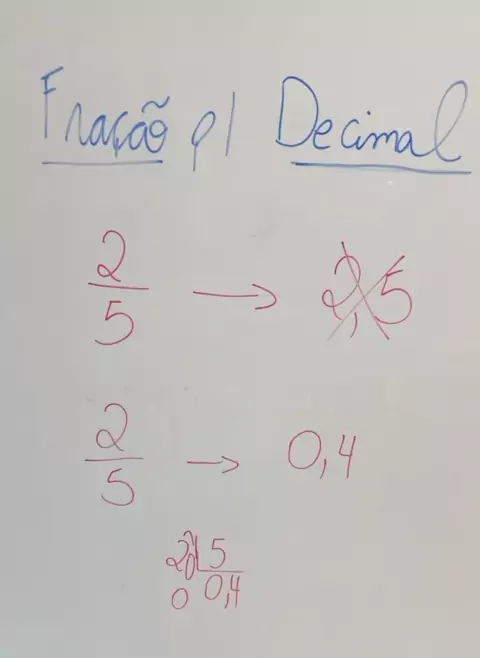 Fração p/ Decimal
2/5 → 2,5
2/5 → 0,4
20 5
0 0,4